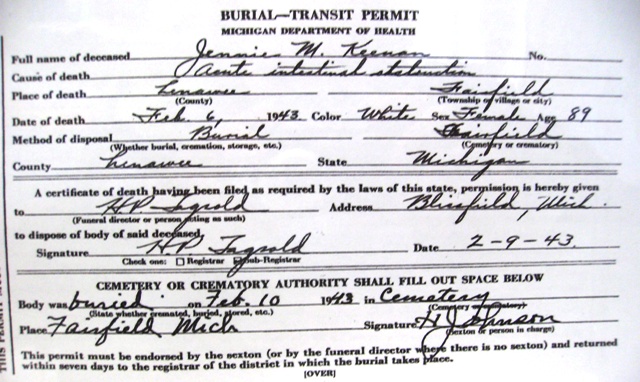 BURIAL—TRANSIT PERMIT
MICHIGAN DEPARTMENT OF HEALTH
Full name of deceased Jennie M. Keenan No.
Cause of death Acute intestinal obstruction
Place of death Lenawee Fairfield
(County) (Township or village or city)
Date of death Feb. 6, 1943 Color White Sex Female Age 89
Method of disposal Burial Fairfield
(Whether burial, cremation, storage, etc.) (Cemetery or crematory)
County Lenawee State Michigan
A certificate of death having been filed as required by the laws of this state, permission is hereby given
to H P Tagsold Address Blissfield, Mich.
(Funeral director or person acting as such)
to dispose of body of said deceased.
Signature H P Tagsold Date 2-9-43.
Check one: Registrar Sub-Registrar
CEMETERY OR CREMATORY AUTHORITY SHALL FILL OUT SPACE BELOW
Body was buried on Feb. 10 1943 in Cemetery
(State whether cremated, buried, stored, etc.) (Cemetery or crematory)
Place Fairfield Mich Signature H Johnson
(Sexton or person in charge)
This permit must be endorsed by the sexton (or by the funeral director where there is no sexton) and returned
within seven days to the registrar of the district in which the burial takes place.
[OVER]
THIS PERMIT